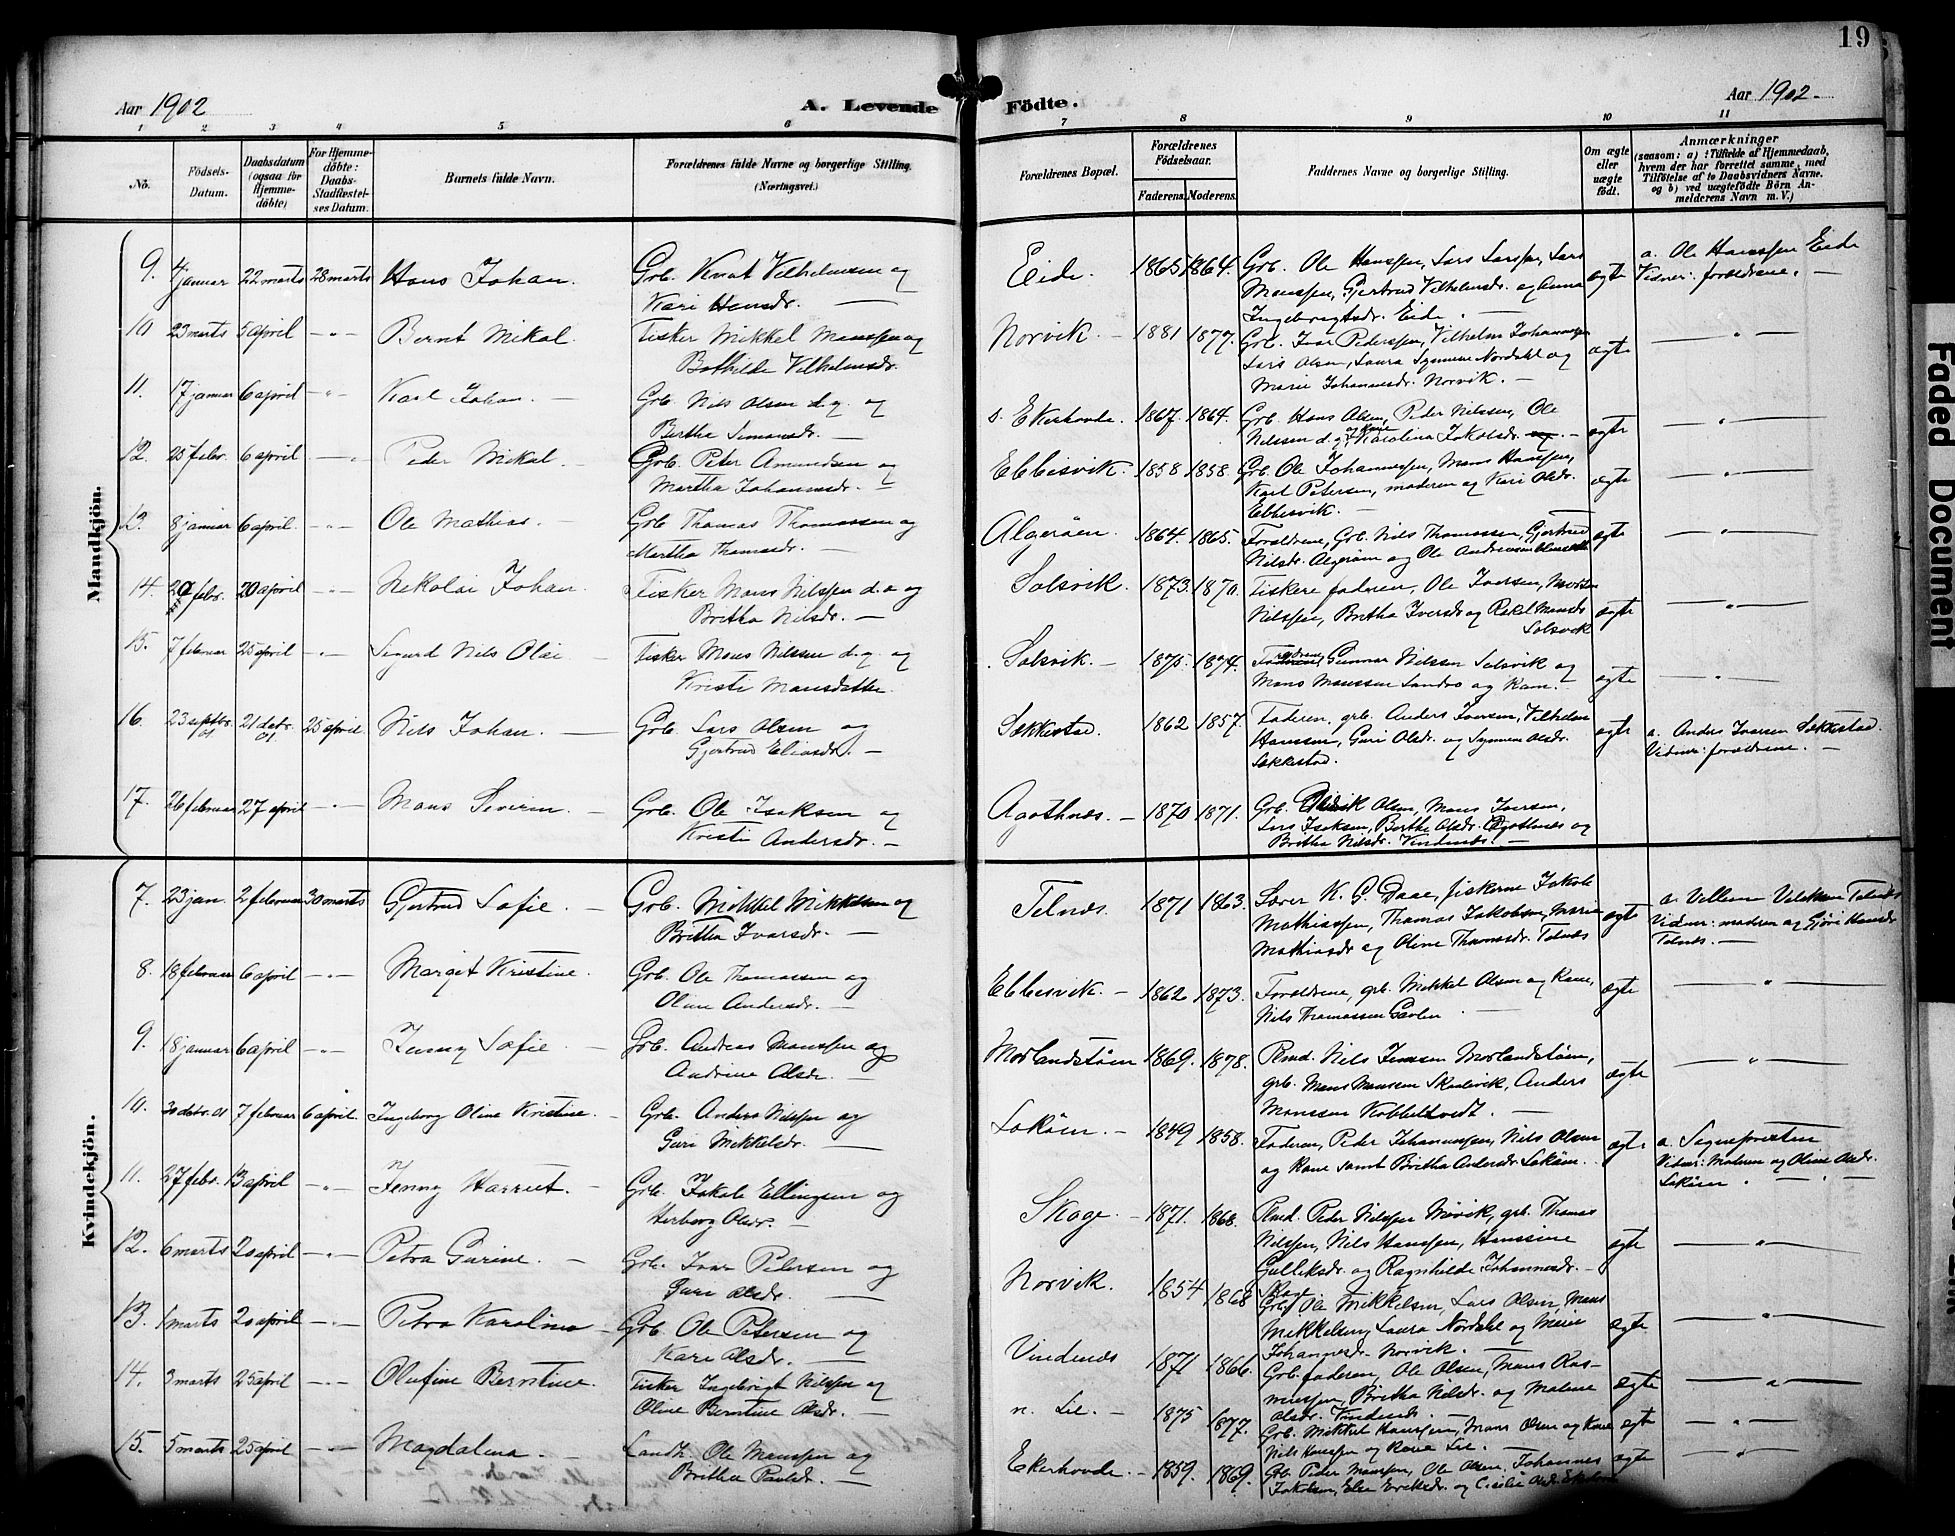 19
Aar 1902
A. Levende
Födte.
Aar 1902.
1 2 3 4 5 6 7 8 9 10 11
No.
Födsels-Datum.
Daabsdatum (ogsaa for Hjemme-döbte)
For Hjemme-döbte: Daabs-Stadfæstel-ses Datum.
Barnets fulde Navn.
Forældrenes fulde Navne og borgerlige Stilling.
(Næringsvei.)
Forældrenes Bopæl.
Forældrenes Födselsaar.
Faderens. Moderens.
Faddernes Navne og borgerlige Stilling.
Om ægte eller uægte födt.
Anmærkninger
(saasom: a) i Tilfælde af Hjemmedaab,
hvem der har forrettet samme, med
Tilföielse af to Daabsvidners Navne.
og b) ved uægtefödte Börn An-
melderens Navn m. V.)
Mandkjön.
9. 4 januar 22 marts 28 marts Hans Johan. Grb. Knut Vilhelmsen og
Kari Hansdr. —
Eide. 1865 1864. Grb. Ole Hanssen, Lars Larsen, Lars
Monssen, Gjertrud Vilhelmsdr. og Anna
Ingebrigtsdr. Eide. —
ægte
a. Ole Hanssen Eide
Vidner: forældrene. —
10 23 marts 5 april —"— Bernt Mikal. Fisker Mikkel Monssen og
Bothilde Vilhelmsdr.
Norvik. — 1881 1877. Grb. Ivar Pederssen, Vilhelm Johannessen
Lars Olsen, Laura Synneve Nordahl og
Marie Johannesdr. Norvik. —
ægte —"—
11. 17 januar 6 april —"— Karl Johan. — Grb. Nils Olsen d.y. og
Berthe Simonsdr. —
s. Ekerhovde. 1867. 1864. Grb. Hans Olsen, Peder Nilssen, Ole
Nilssen d.y. og Kone Karolina Jakobsdr. —
ægte —"—
12. 25 febr. 6 april —"— Peder Mikal. — Grb. Peter Amundsen og
Martha Johannesdr. —
Ebbesvik. 1858 1858. Grb. Ole Johannessen, Mons Hanssen,
Karl Petersen, moderen og Kari Olsdr.
Ebbesvik. —
ægte —"—
12. 8 januar 6 april. —"— Ole Mathias. — Grb. Thomas Thomassen og
Martha Thomasdr. —
Algeröen. 1864. 1865. Forældrene, Grb. Nils Thomassen, Gjertrud
Nilsdr. Algeröen og Ole Andreassen
ægte —"—
14. 20 april —"— Nikolai Johan. Fisker Mons Nilssen d.e og
Britha Nilsdr. —
Solsvik. 1873. 1870. Fiskere faderen, Ole Iversen, Morten
Nilssen, Britha Iversdr og Rakel Monsdr
Solsvik
ægte —"—
15. 7 februar 25 april —"— Sigurd Nils Olai — Fisker Mons Nilssen d.y. og
Kristi Monsdatter
Solsvik. — 1875. 1874. Forældrene, Gunnar Nilssen Solsvik og
Mons Monssen Landro og Kone. —
ægte —"—
16. 23 septbr. 01 21 dcbr. 01. 25 april Nils Johan. — Grb. Lars Olsen og
Gjertrud Eliasdr. —
Sekkestad. 1862 1857. Faderen, grb. Anders Iversen, Vilhelm
Hanssen, Guri Olsdr. og Synneve Olsdr.
Sekkestad.
ægte
a. Anders Iversen Sekkestad.
Vidner: forældrene. —
17. 26 februar 27 april —"— Mons Severin. — Grb. Ole Isaksen og
Kristi Andersdr. —
Agothnes. — 1870 1871. Grb. Olsen, Mons Iversen,
Lars Isaksen, Berthe Olsdr. Agothnes og
Britha Nilsdr. Vindenes. —
ægte
Kvindekjön.
7. 23 jan. 2 februar 30 marts Gjertrud Sofie. — Grb. Mikkel Mikkelsen og
Britha Ivarsdr. —
Telnes. 1871 1863. Lærer K. G. Daae, fiskerne Jakob
Mathiassen, Thomas Jakobsen, Marie
Mathiasdr og Oline Thomasdr. Telnes
ægte
a. Villem Telnes
Vidner: moderen og Hansdr
Telnes. —
8. 18 februar 6 april —"— Margit Kristine. Grb. Ole Thomassen og
Oline Andersdr. —
Ebbesvik. — 1862 1873. Forældrene, grb. Mikkel Olsen og Kone,
Nils Thomassen —
ægte —"—
9. 18 januar 6 april —"— Jenny Sofie. — Grb. Andreas Monssen og
Andrine Olsdr. —
Morlandstöen 1869. 1878. Rmd. Nils Jensen Morlandstöen,
grb. Mons Monssen Skaalevik, Anders
Monssen Kobbeltvedt. —
ægte —"—
10. 30 dcbr. 01 7 februar 6 april. Ingeborg Oline Kristine. — Grb. Anders Nilssen og
Guri Mikkelsdr. —
Loköen. — 1849 1858. Faderen, Peder Johannessen, Nils Olsen
og Kone samt Britha Andersdr. Loköen.
ægte
a. Sognepresten
Vidner: Moderen og Oline Olsdr.
Loköen. —"—
11. 27 febr. 13 april —"— Jenny Harriet. — Grb. Jakob Ellingsen og
Herborg Olsdr. —
Skoge. — 1871. 1868. Rmd. Peder Nilssen Növik, grb. Thomas
Nilssen, Nils Hanssen, Hanssine
Gulliksdr. og Ragnhilde Johannesdr. —
Skoge
ægte —"—
12. 6 marts 20 april —"— Petra Gurine. — Grb. Ivar Petersen og
Guri Olsdr. —
Norvik. 1854 1868 Grb. Ole Mikkelsen, Lars Olsen, Mons
Mikkelsen, Laura Nordahl og Marie
Johannesdr. Norvik. —
ægte —"—
13. 1 marts 20 april —"— Petra Karolina — Grb. Ole Petersen og
Kari Olsdr. —
Vindenes 1871 1866. Grb. faderen, Ole Olsen, Mons Ras-
mussen, Britha Nilsdr. og Malene
Olsdr. Vindenes. —
ægte —"—
14. 3 marts 25 april —"— Olufine Berntine. Fisker Ingebrigt Nilssen og
Oline Berntine Olsdr. —
n. Lie. — 1875 1877. Grb. Mikkel Hanssen, Mons Olsen og Kone
Nils Hanssen og Kone Lie. —
ægte —"—
15. 5 marts 25 april —"— Magdalena. — Landh. Ole Monssen og
Britha Paulsdr. —
Ekerhovde. — 1859. 1869. Grb. Peder Monssen, Ole Olsen, Johannes
Jakobsen, Else Eriksdr. og Cicilie Olsdr.
ægte —"—
Faded Document